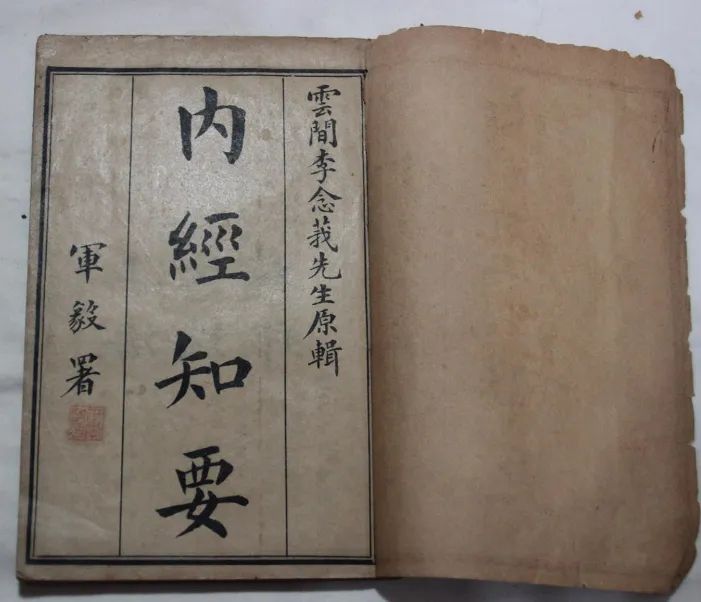 雲間李念莪先生原輯
內經知要
軍毅署